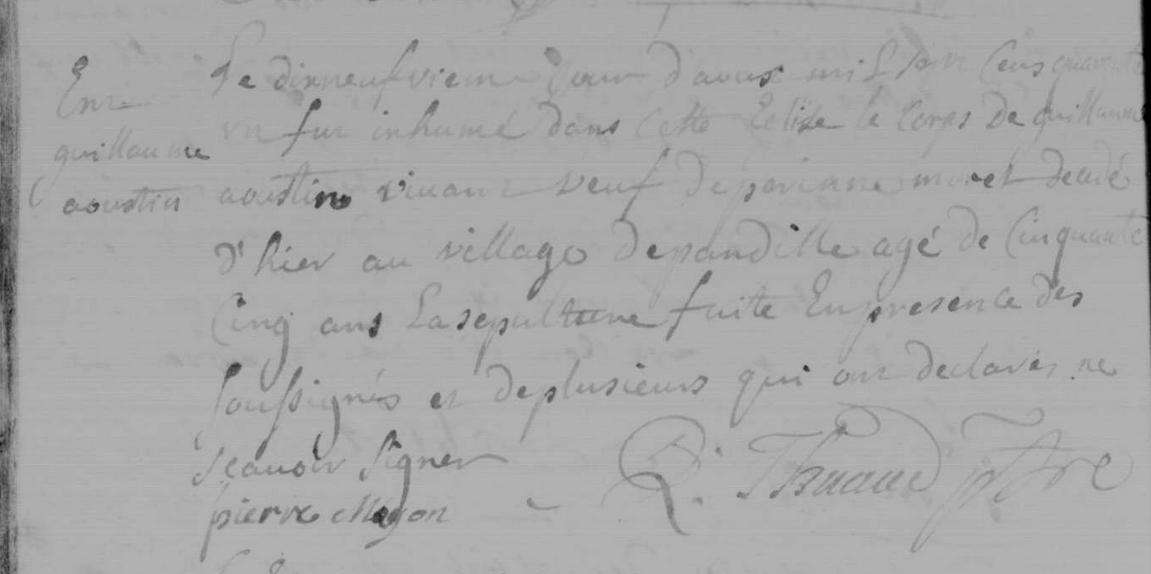 Ent
guillaume
aoustin
Le dixneufvieme jour daoust mil sept cens quarante
un fut inhumé dans cette Eglise le corps de guillaume
aoustin vivant veuf de moret decedé
d'hier au village de pandille agé de Cinquante
Cinq ans La sepulture faite En presence des
soussignés et de plusieurs qui ont declarés ne
scavoir signer
pierre Moyon R. Thuaud ptre